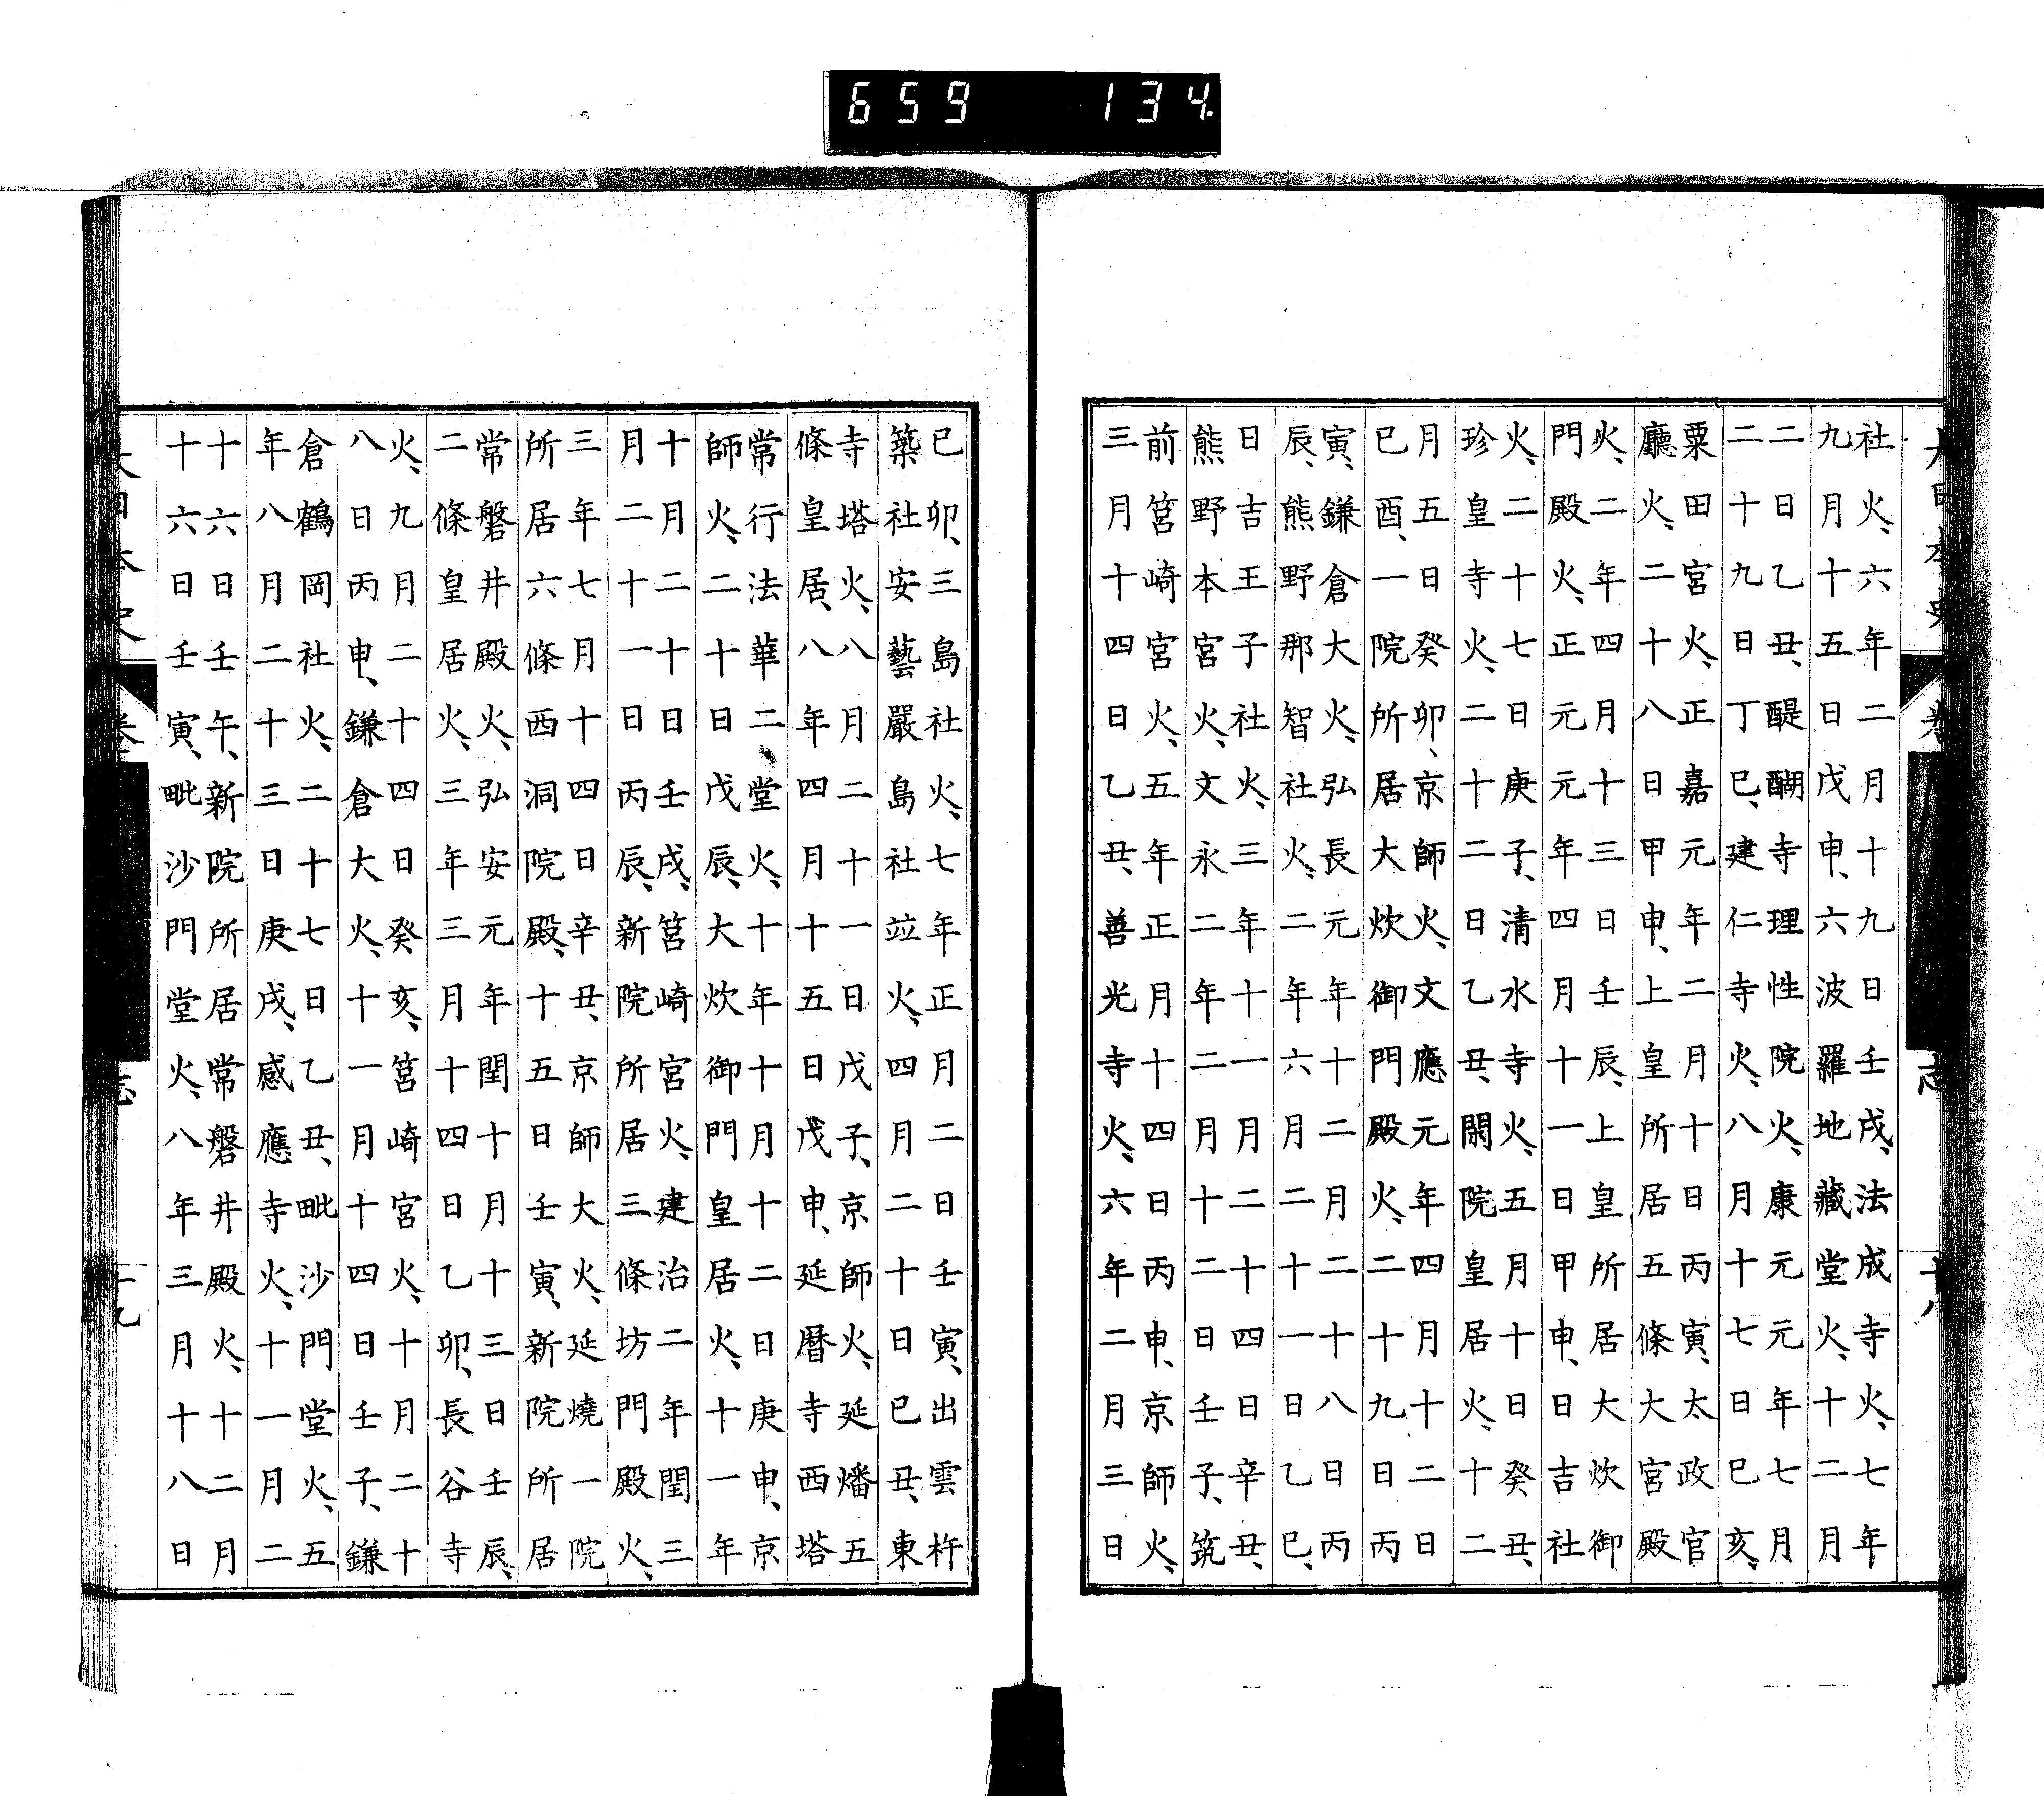 大日本史 卷 志 十八
社火、六年二月十九日壬戌、法成寺火、七年
九月十五日戊申、六波羅地藏堂火、十二月
二日乙丑、醍醐寺理性院火、康元元年七月
二十九日丁巳、建仁寺火、八月十七日巳亥、
粟田宮火、正嘉元年二月十日丙寅、太政官
廳火、二十八日甲申、上皇所居五條大宮殿
火、二年四月十三日壬辰、上皇所居大炊御
門殿火、正元元年四月十一日甲申、日吉社
火、二十七日庚子、清水寺火、五月十日癸丑、
珍皇寺火、二十二日乙丑、閑院皇居火、十二
月五日癸卯、京師火、文應元年四月十二日
巳酉、一院所居大炊御門殿火、二十九日丙
寅、鎌倉大火、弘長元年十二月二十八日丙
辰、熊野那智社火、二年六月二十一日乙巳、
日吉王子社火、三年十一月二十四日辛丑、
熊野本宮火、文永二年二月十二日壬子、筑
前筥崎宮火、五年正月十四日丙申、京師火、
三月十四日乙丑、善光寺火、六年二月三日
巳卯、三島社火、七年正月二日壬寅、出雲杵
築社安藝嚴島社竝火、四月二十日巳丑、東
寺塔火、八月二十一日戊子、京師火、延燔五
條皇居、八年四月十五日戊申、延暦寺西塔
常行法華二堂火、十年十月十二日庚申、京
師火、二十日戊辰、大炊御門皇居火、十一年
十月二十日壬戌、筥崎宮火、建治二年閏三
月二十一日丙辰、新院所居三條坊門殿火、
三年七月十四日辛丑、京師大火、延燒一院
所居六條院西洞院殿、十五日壬寅、新院所居
常磐井殿火、弘安元年閏十月十三日壬辰、
二條皇居火、三年三月十四日乙卯、長谷寺
火、九月二十四日癸亥、筥崎宮火、十月二十
八日丙申、鎌倉大火、十一月十四日壬子、鎌
倉鶴岡社火、二十七日乙丑、毗沙門堂火、五
年八月二十三日庚戌、感應寺火、十一月二
十六日壬午、新院所居常磐井殿火、十二月
十六日壬寅、毗沙門堂火、八年三月十八日
大日本史 卷 志 十九